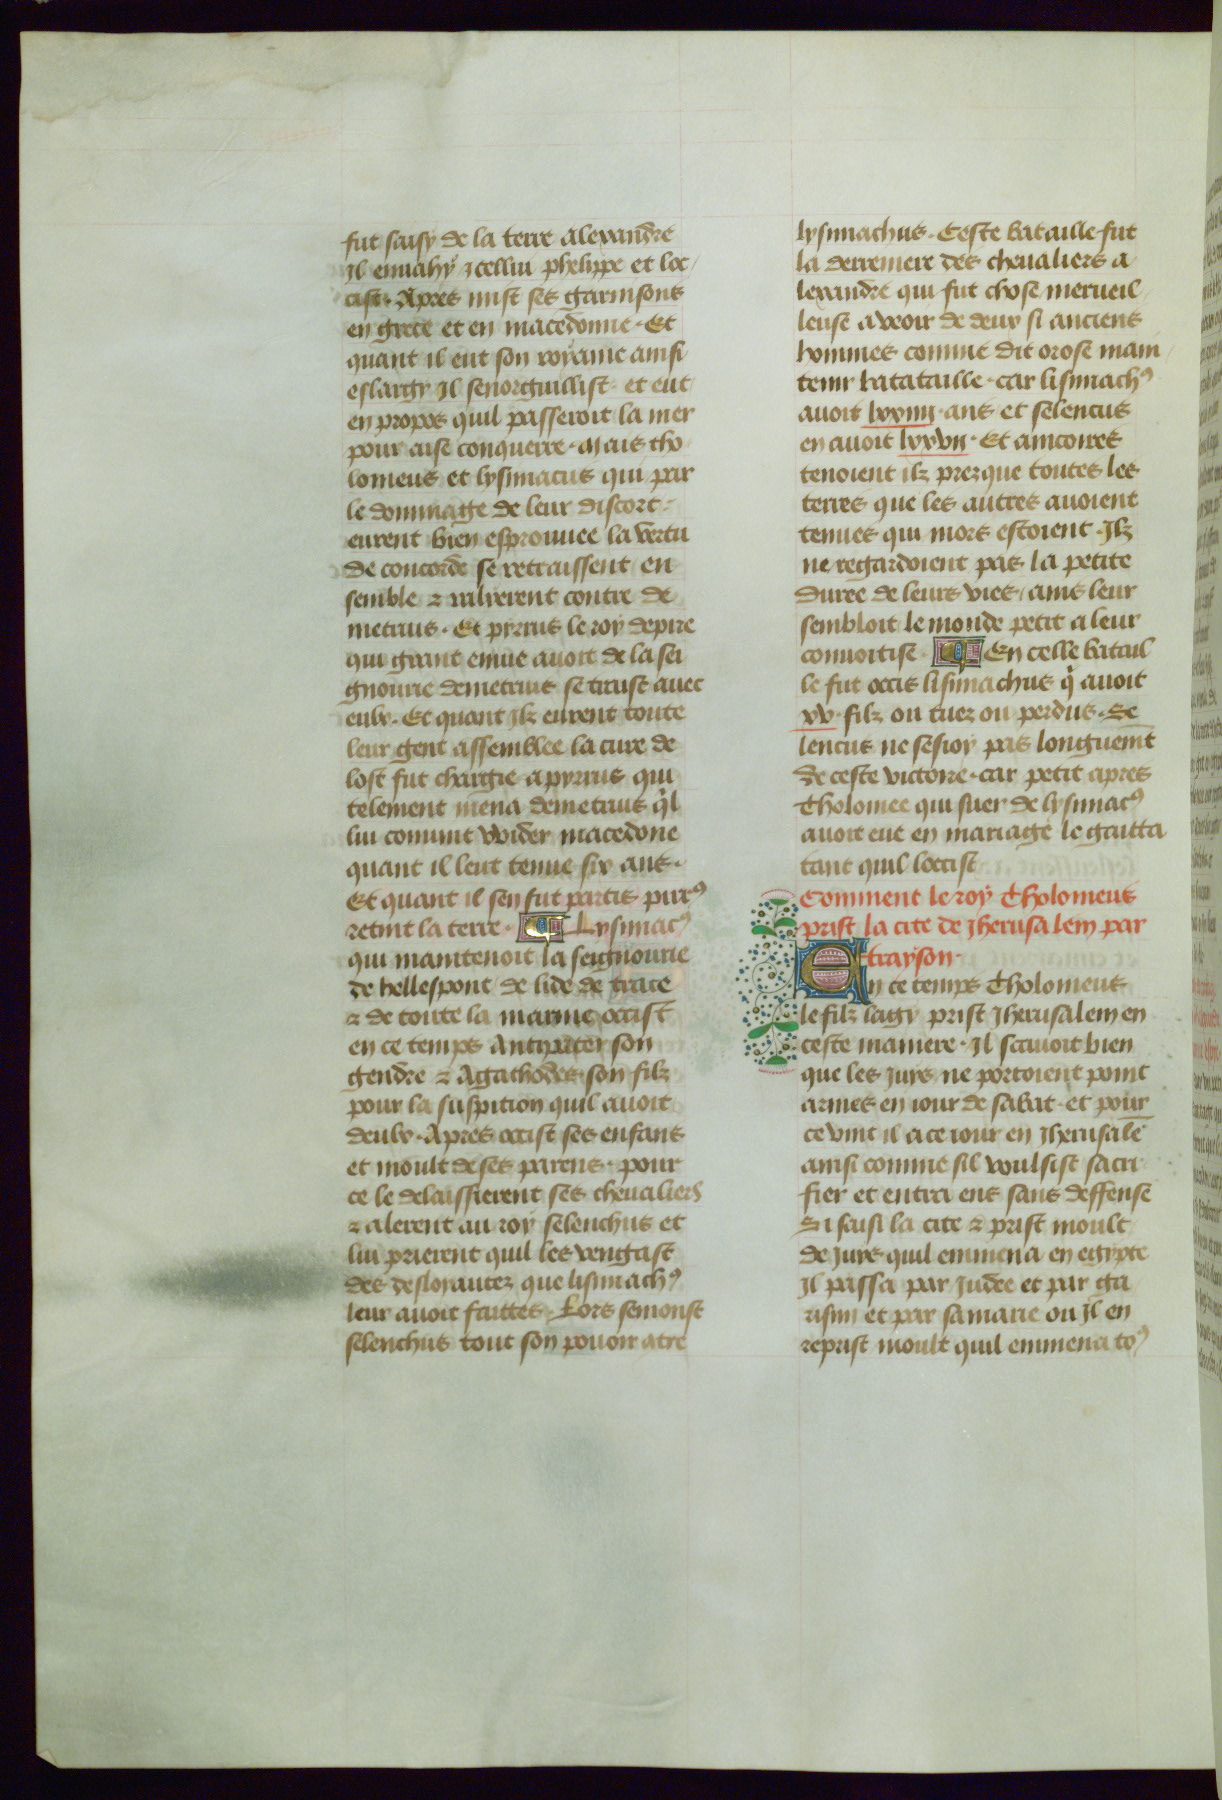 fut saisy de la terre alexandre
Il enuahy icellui phelippe et loc
cist. Apres mist ses garnisons
en grece et en macedonne. Et
quant il eut son royame ainsi
eslargy Il senorguillist. et eut
en propos quil passeroit la mer
pour aise conquerre. Mais tho
lomeus et lysimacus qui par
le dommage de leur discort
eurent bien esprouuee la vertu
de concorde se retraissent en
semble ⁊ ralierent contre de
metrius. Et pyrrus le roy depire
qui grant enuie auoit de la sei
gnourie demetrius se traist auec
eulx. Et quant Ilz eurent toute
leur gent assemblee la cure de
lost fut chargie a pyrrus qui
telement mena demetrius q̃l
lui conuint voider macedone
quant il leut tenue six ans.
Et quant il sen fut partis pirrꝰ
retint la terre. ¶ Lysimacꝰ
qui maintenoit la seignourie
de hellespont de lide de trace
⁊ de toute la marine occist
en ce temps Antipater son
gendre ⁊ Agathodes son filz
pour la suspition quil auoit
deulx. Apres occist ses enfans
et moult de ses parens. pour
ce le delaissierent ses cheualiers
⁊ alerent au roy selenchus et
lui prierent quil les vengast
des desloyautez que lisimachꝰ
leur auoit faittes. Lors semonst
selenchus tout son pouoir atre
lysimachus. Ceste bataille fut
la derreniere des cheualiers a
lexandre qui fut chose merueil
leuse a veoir de deux si anciens
hommes comme dit orose main
tenir batataille. car lisimachꝰ
auoit lxxiiii. ans et selencus
en auoit lxxvii. Et aincoires
tenoient ilz prezque toutes les
terres que les autres auoient
tenues qui mors estoient. Ilz
ne regardoient pas la petite
duree de leurs vies. ains leur
sembloit le monde petit a leur
conuoitise. ¶ En celle batail
le fut occis lisimachus q̃ auoit
xv. filz ou tuez ou perdus. Se
lencus ne sesioy pas longuemẽt
de ceste victoire. car petit apres
Tholomee qui suer de lysimacꝰ
auoit eue en mariage le gaitta
tant quil loccist
Comment le roy Tholomeus
prist la cite de Jherusalem par
trayson.
En ce temps Tholomeus
le filz lagy prist Jherusalem en
ceste maniere. Il scauoit bien
que les Juys ne portoient point
armes en iour de sabat. et pour
ce vint il a ce iour en Jherusalẽ
ainsi comme sil voulsist sacri
fier et entra ens sans deffense
Si saisi la cite ⁊ prist moult
de Juys quil emmena en egypte
Il passa par Judee et par ga
risim et par samarie ou Il en
reprist moult quil emmena toꝰ